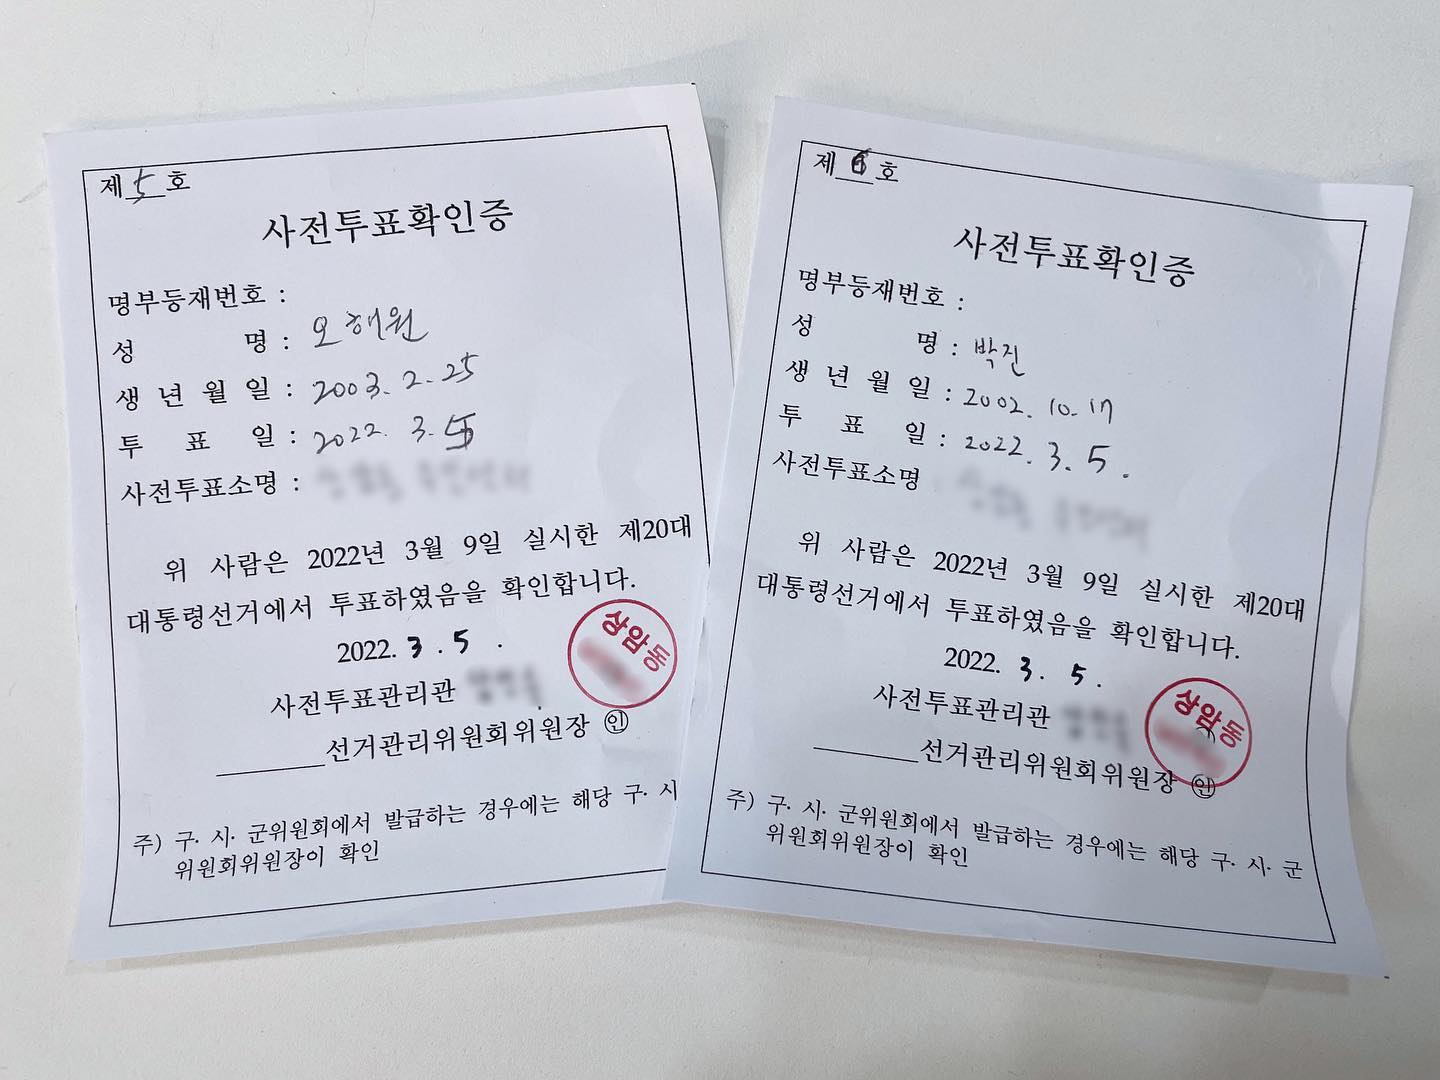 제 5 호
사전투표확인증
명부등재번호 :
성 명 : 오해원
생 년 월 일 : 2003. 2. 25
투 표 일 : 2022. 3. 5
사전투표소명 :
위 사람은 2022년 3월 9일 실시한 제20대
대통령선거에서 투표하였음을 확인합니다.
2022. 3 . 5 .
사전투표관리관
선거관리위원회위원장 ㊞
상암동
주) 구· 시· 군위원회에서 발급하는 경우에는 해당 구· 시
위원회위원장이 확인
제 6 호
사전투표확인증
명부등재번호 :
성 명 : 박진
생 년 월 일 : 2002. 10. 17
투 표 일 : 2022. 3. 5.
사전투표소명
위 사람은 2022년 3월 9일 실시한 제20대
대통령선거에서 투표하였음을 확인합니다.
2022. 3. 5.
사전투표관리관
선거관리위원회위원장 ㊞
상암동
주) 구· 시· 군위원회에서 발급하는 경우에는 해당 구· 시· 군
위원회위원장이 확인